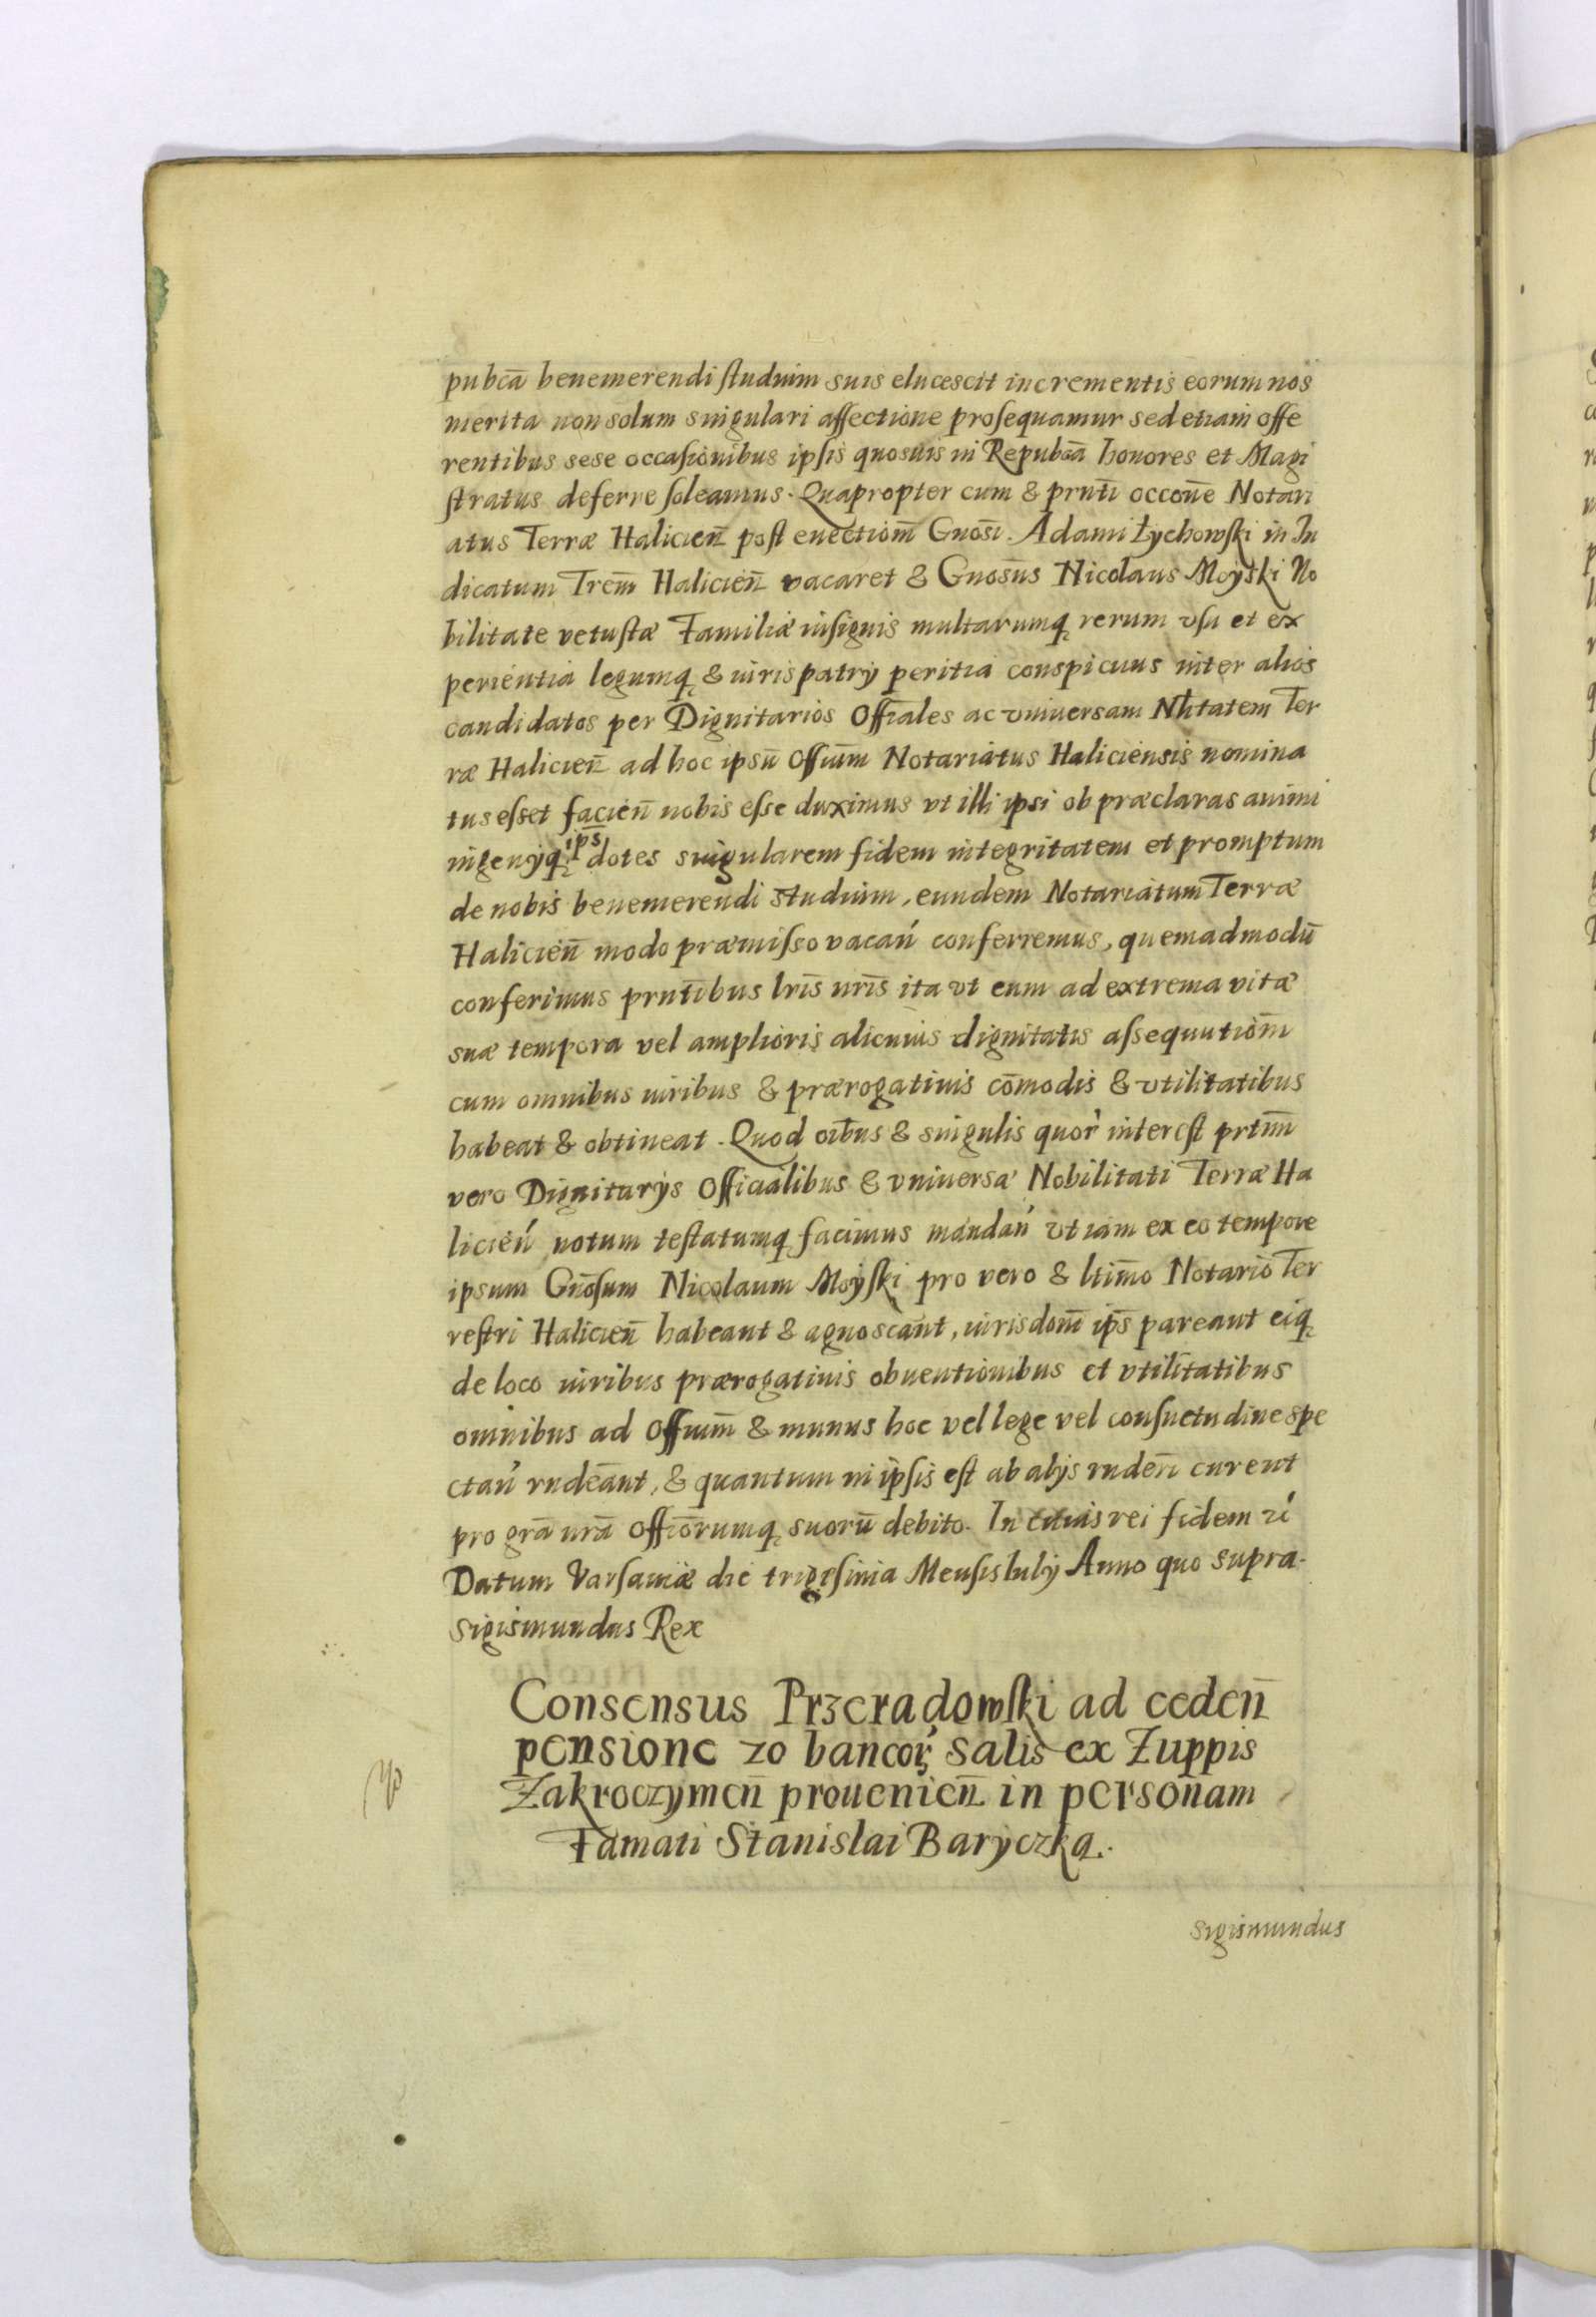 pubcā benemerendi studium suis elucescit incrementis eorum nos
merita non solum singulari affectione prosequamur sed etiam offe
rentibus sese occasionibus ipsis quosuis in Repubcā honores et Magi
stratus deferre soleamus. Quapropter cum & prntī occonē Notari
atus Terræ Halicień post euectionm̄ Gnosī. Adami Łychowski in Iu
dicatum Trem̄ Halicień vacaret & Gnosūs Nicolaus Moyski No
bilitate vetustæ Familiæ insignis multarumq̨ rerum vsu et ex
perientia legumq̨ & iuris patrÿ peritia conspicuus inter alios
candidatos per Dignitarios Offīales ac vniuersam Nltatem Ter
ræ Halicień ad hoc ipsū Offium̄ Notariatus Haliciensis nomina
tus esset facień nobis esse duximus vt illi ipsi ob præclaras animi
ingenÿq̨ ips̄ dotes singularem fidem integritatem et promptum
de nobis benemerendi studium, eundem Notariatum Terræ
Halicień modo præmisso vacań conferremus, quemadmodū
conferimus prntībus lrīs nrīs ita vt eum ad extrema vitæ
suæ tempora vel amplioris alicuius dignitatis assequutionm̄
cum omnibus iuribus & prærogatiuis cōmodis & vtilitatibus
habeat & obtineat. Quod oībus & singulis quor̀ interest prtim̄
vero Dignitarÿs Officialibus & vniuersæ Nobilitati Terræ Ha
licień notum testatumq̨ facimus mandań vt iam ex eo tempore
ipsum Gnōsum Nicolaum Moyski pro vero & ltimō Notario Ter
restri Halicień habeant & agnoscant, iurisdonī ips̄ pareant eiq̨
de loco iuribus prærogatiuis obuentionibus et vtilitatibus
omnibus ad Offium̄ & munus hoc vel lege vel consuetudine spe
ctań rndēant, & quantum in ipsis est ab alÿs rnderī curent
pro grā nrā Offiōrumq̨ suorū debito. In cuius rei fidem zć
Datum Varsauiæ die trigesima Mensis Iulÿ Anno quo supra.
Sigismundus Rex
Consensus Przeradowski ad cedeń
pensione 20 bancor̨ salis ex Zuppis
Zakroczymeń prouenień in personam
Famati Stanislai Baryczka.
Sigismundus